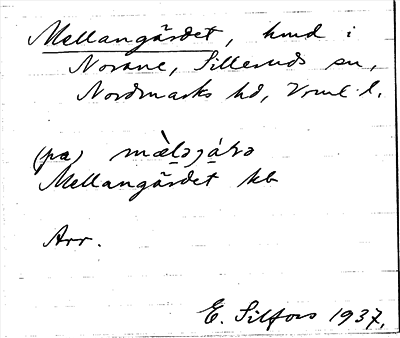 Mellangärdet, hmd i
Norane, Silleruds sn,
Nordmarks hd, Vrml. l.
(pa) mæ̀lǝjá
Mellangärdet kb
Arr.
E. Silfors 1937.